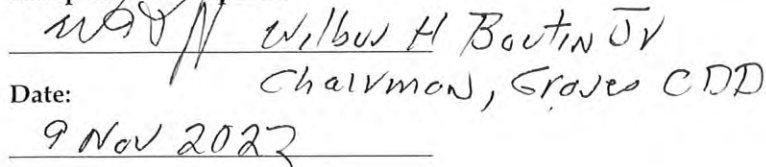 Wilbur H Boutin Jr
Chairman, Groves CDD
Date:
9 Nov 2022